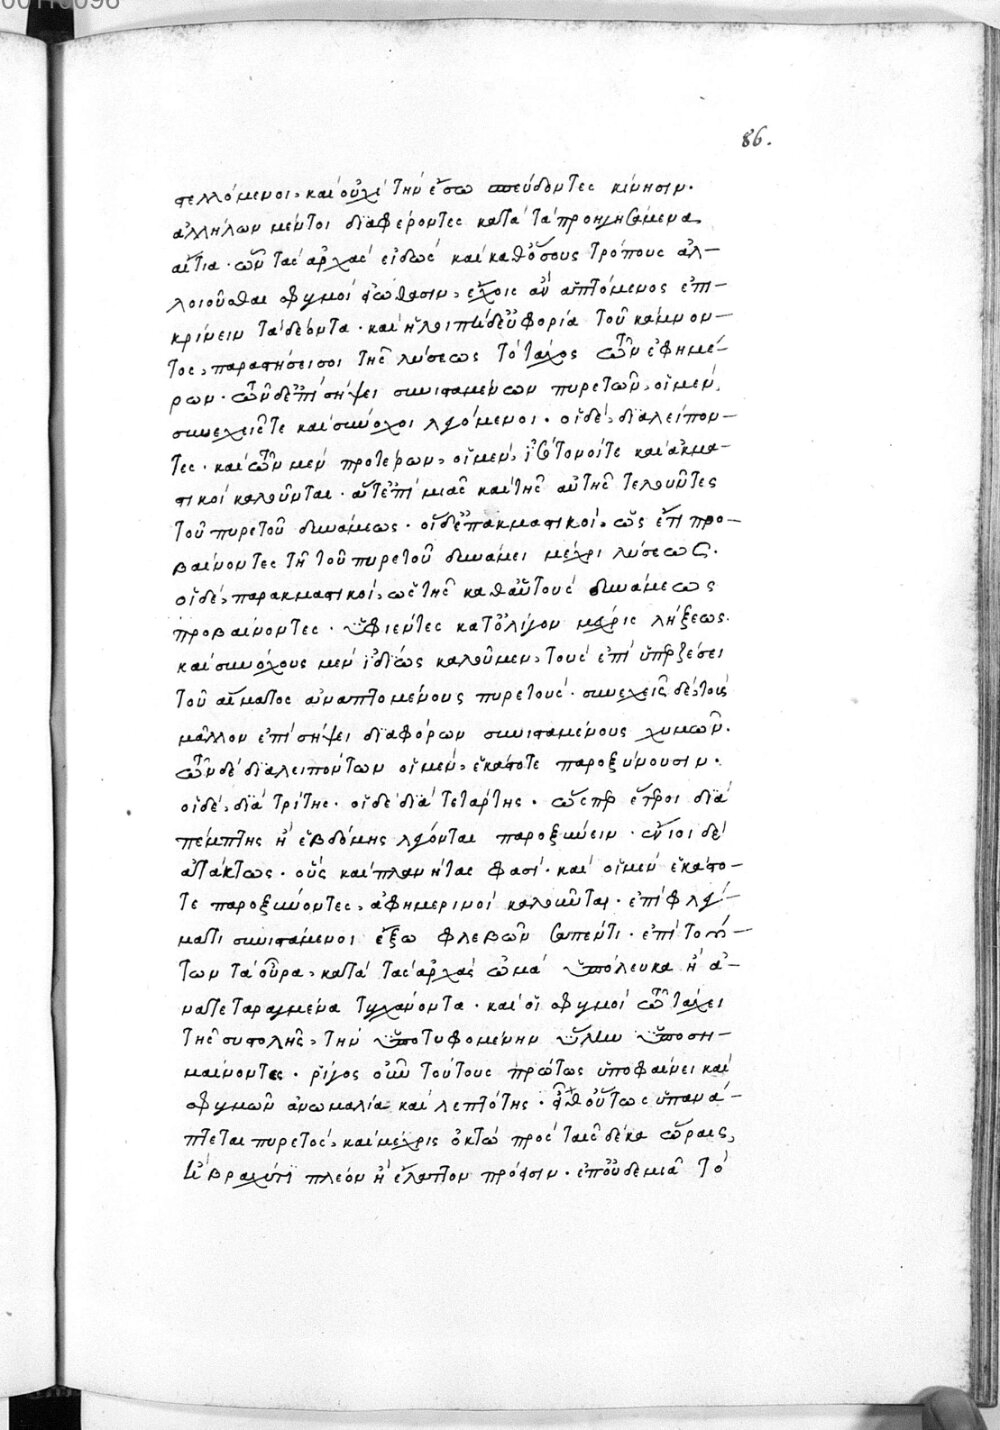 86.
στελλόμενοι, καὶ οὐχὶ τὴν ἔσω σπεύδοντες κίνησιν.
ἀλλήλων μέντοι διαφέροντες κατὰ τὰ προηγησάμενα
αἴτια. ὧν τὰς ἀρχὰς εἰδὼς καὶ καθ' ὅσους τρόπους ἀλ-
λοιοῦσθαι σφυγμοὶ εἰώθασιν, ἔχοις ἂν ἁπτόμενος ἐπι-
κρίνειν τὰ δέοντα. καὶ ἡ λοιπὴ δὲ εὐφορία τοῦ κάμνον-
τος, παραστήσει σοι τῆς λύσεως τὸ τάχος τῶν ἐφημέ-
ρων. τῶν δ' ἐπὶ σήψει συνισταμένων πυρετῶν, οἱ μέν,
συνεχεῖς τε καὶ σύνοχοι λέγονται. οἱ δὲ, διαλείπον-
τες. καὶ τῶν μὲν προτέρων, οἱ μέν, ὁμότονοί τε καὶ ἀκμα-
στικοὶ καλοῦνται. ἅτ' ἐπὶ μιᾶς καὶ τῆς αὐτῆς τελοῦντες
τοῦ πυρετοῦ δυνάμεως. οἱ δ' ἐπακμαστικοὶ, ὡς ἐπιπρο-
βαίνοντες τῇ τοῦ πυρετοῦ δυνάμει μέχρι λύσεως.
οἱ δὲ, παρακμαστικοί, ὡς τῆς καθ' αὑτοὺς δυνάμεως
προβαίνοντες. ὑφιέντες κατ' ὀλίγον μέχρις λήξεως.
καὶ συνόχους μὲν ἰδίως καλοῦμεν, τοὺς ἐπὶ ὑπερζέσει
τοῦ αἵματος ἀναπτομένους πυρετούς. συνεχεῖς δὲ, τοὺς
μᾶλλον ἐπὶ σήψει διαφόρων συνισταμένους χυμῶν.
τῶν δὲ διαλειπόντων οἱ μέν, ἑκάστοτε παροξύνουσιν.
οἱ δὲ, διὰ τρίτης. οἱ δὲ διὰ τετάρτης. ὥσπερ ἕτεροι διὰ
πέμπτης ἢ ἑβδόμης λέγονται παροξύνειν. ἔνιοι δὲ
ἀτάκτως. οὓς καὶ πλανήτας φασί. καὶ οἱ μὲν ἑκάστο-
τε παροξύνοντες, ἀφημερινοὶ καλοῦνται. ἐπὶ φλέγ-
ματι συνιστάμενοι ἔξω φλεβῶν σαπέντι. ἐπὶ τού-
των τὰ οὖρα, κατὰ τὰς ἀρχὰς ὠμὰ ὑπόλευκα ἢ ἀ-
νατεταραγμένα τυγχάνοντα. καὶ οἱ σφυγμοὶ τῷ τάχει
τῆς συστολῆς, τὴν ὑποτυφομένην ὕλην ὑποση-
μαίνοντες. ῥίγος οὖν τούτους πρώτως ὑποφαίνει καὶ
σφυγμῶν ἀνωμαλία καὶ λεπτότης. εἶθ' οὕτως ὑπανά-
πτεται πυρετὸς, καὶ μέχρις ὀκτὼ πρὸς ταῖς δέκα ὥραις,
ἢ βραχύ τι πλέον ἢ ἔλαττον πρόεισιν. ἐπ' οὐδεμιᾷ τὸ